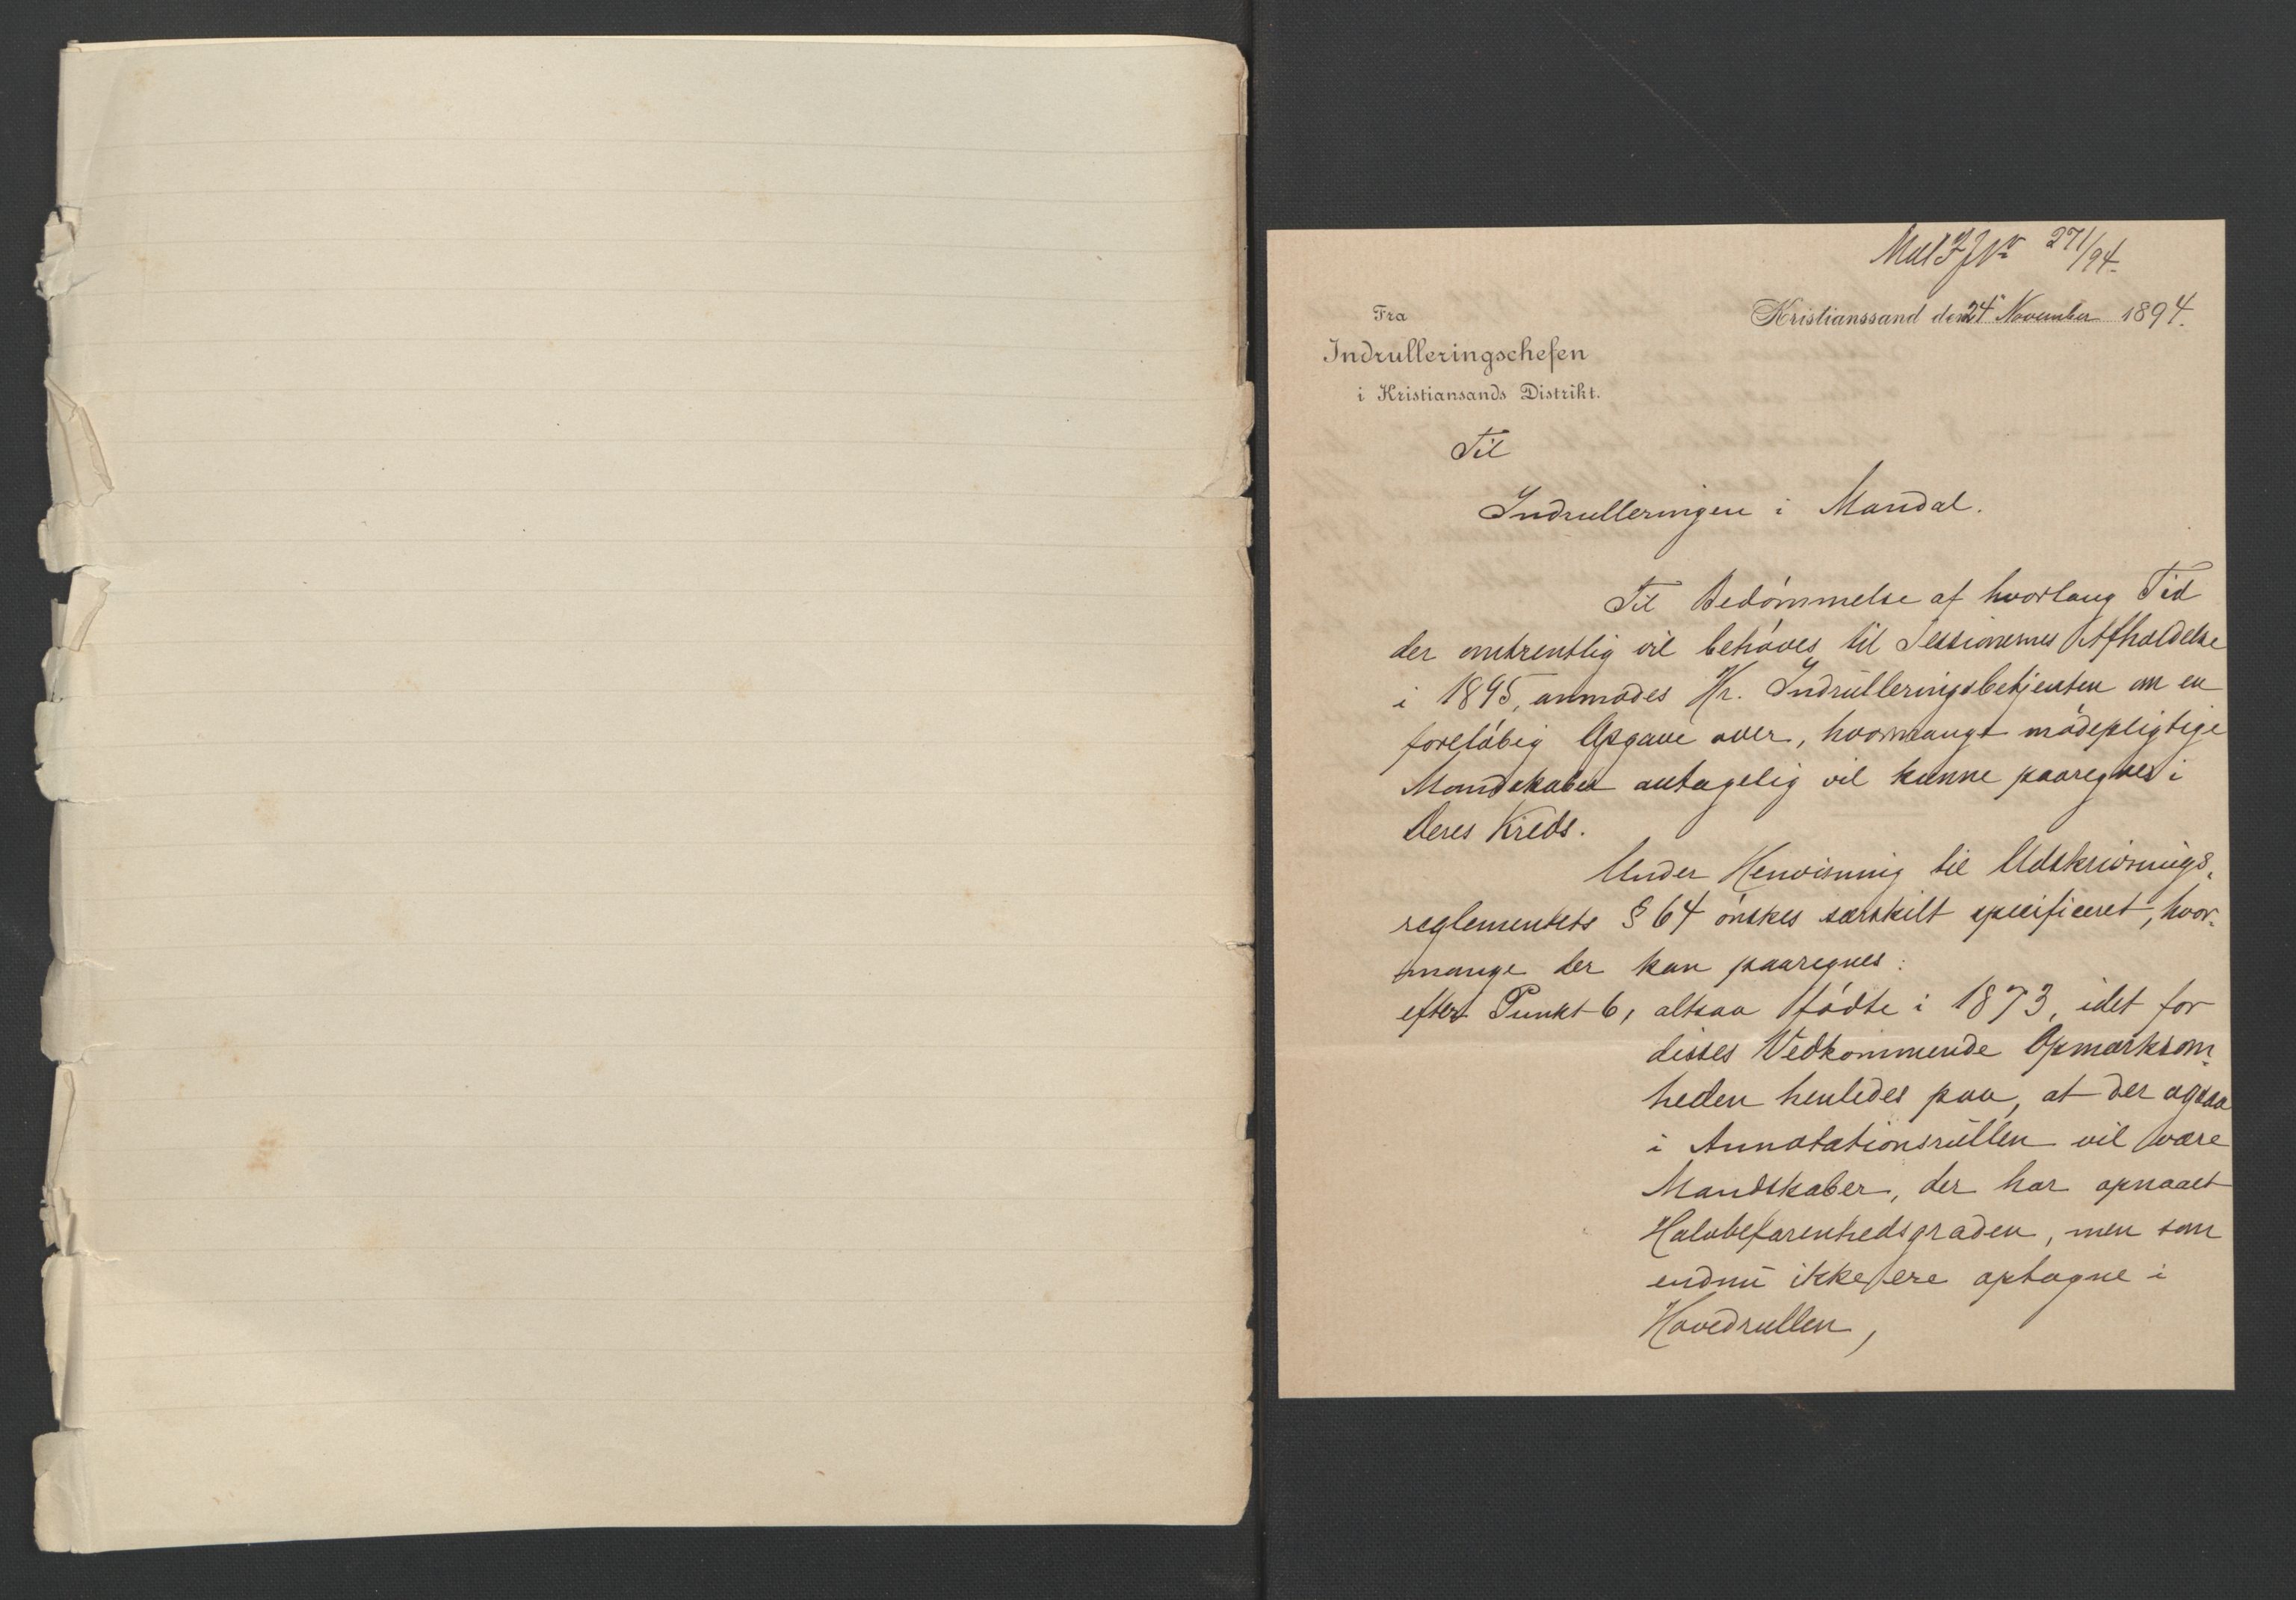 Mdl I J Nr 271/94.
Fra
Kristianssand den 24' November 1894.
Indrulleringschefen
i Kristiansands Distrikt.
Til
Indrulleringen i Mandal.
Til Bedømmelse af hvorlang Tid
der omtrentlig vil behøves til Sessionernes Afholdelse
i 1895, anmodes Hr. Indrulleringsbetjenten om en
foreløbig Opgave over, hvormange mødepligtige
Mandskaber antagelig vil kunne paaregnes i
Deres Kreds.
Under Henvisning til Udskrivnings-
reglementets § 64 ønskes særskilt specificeret, hvor-
mange der kan paaregnes:
efter Punkt 6, altsaa fødte i 1873, idet for
disses Vedkommende Opmærksom-
heden henledes paa, at der ogsaa
i Annotationsrullen vil være
Mandskaber, der har opnaaet
Halvbefarenhedsgraden, men som
endnu ikke ere optagne i
Hovedrullen,